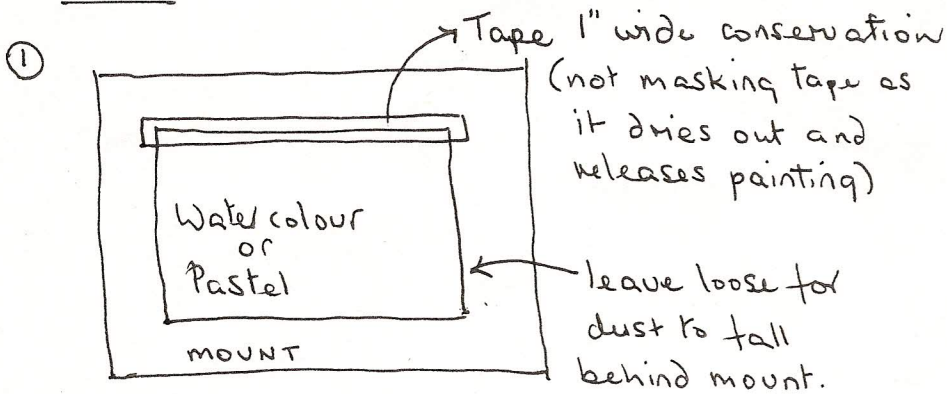 ①
Tape 1" wide conservation
(not masking tape as
it dries out and
releases painting)
Watercolour
or
Pastel
leave loose for
dust to fall
behind mount.
MOUNT